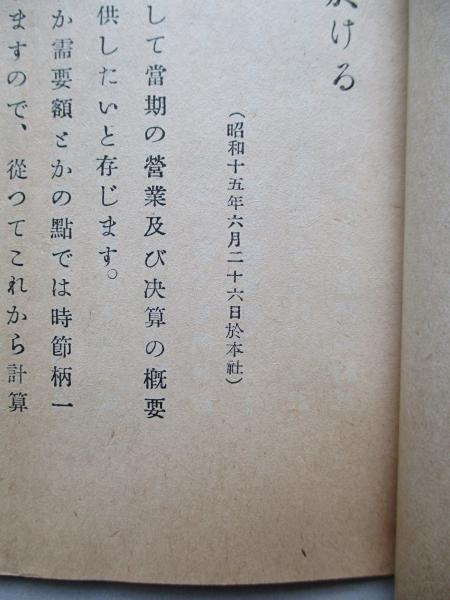 ける
（昭和十五年六月二十六日於本社）
して當期の營業及び决算の概要
供したいと存じます。
か需要額とかの點では時節柄一
ますので、從つてこれから計算